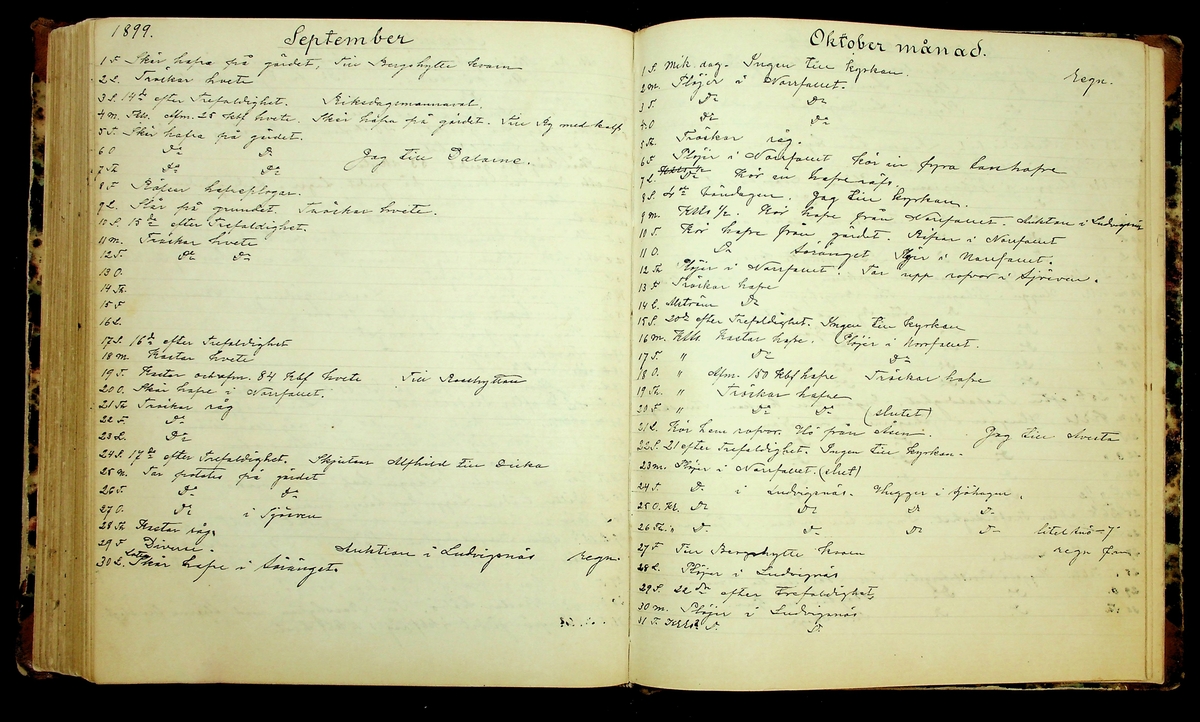 1899.
September
1 F Skär hafre på gärdet, Till Bergshytte kvarn
2 L. Tröskar hvete
3 S. 14de efter Trefaldighet. Riksdagsmannaval
4 M. Afm. 25 kbf hvete. Skär hafre på gärdet. Till By med kalf
5 T. Skär hafre på gärdet.
6 O Do Do Jag till Dalarne.
7 Th Do Do
8 F
9 L. Slår på grundet. Tröskar hvete.
10 S. 15de efter Trefaldighet.
11 M. Tröskar hvete
12 T. Do Do
13 O.
14 Th.
15 F
16 L.
17 S. 16de efter Trefaldighet
18 M Kastar hvete
19 T. Kastar och afm. 84 kbf hvete Till
20 O. Skär hafre i Norrfallet.
21 Th Tröskar råg
22 F Do
23 L. Do
24 S. 17de efter Trefaldighet. Skjutsar Alfhild till
25 M. Tar potates på gärdet
26 T. Do Do
27 O. Do i Sjöreven
28 Th Kastar råg.
29 F. Diverse. Auktion i Ludvigsnäs Regn.
30 L. Skär hafre i Åränget.
Oktober månad.
1 S. Mik. dag. Ingen till kyrkan. Regn.
2 M. Plöjer i Norrfallet.
3 T. Do Do
4 O Do Do
5 Th Tröskar råg.
6 F. Plöjer i Norrfallet Kör in fyra lass hafre
7 L. Do Kör in hafre
8 S. Söndagen. Jag till kyrkan.
9 M. 1/2. Kör hafre från Norrfallet. Auktion i Ludvigsnäs
10 T. Kör hafre från gärdet. i Norrfallet
11 O. Do Åränget Plöjer i Norrfallet.
12 Th Plöjer i Norrfallet Tar upp rofvor i Sjöreven.
13 F Tröskar hafre
14 L. Do
15 S. 20de efter Trefaldighet. Ingen till kyrkan
16 M. Kastar hafre. Plöjer i Norrfallet.
17 T. " Do Do
18 O. " Afm. 150 kbf hafre Tröskar hafre
19 Th. " Tröskar hafre
20 F. " Do Do (slutet)
21 L. Kör hem rofvor. Hö från Åsen. Jag till Avesta
22 S. 21 efter Trefaldighet. Ingen till kyrkan.
23 M. Plöjer i Norrfallet. (slut)
24 T. Do i Ludvigsnäs. Hugger i Sjöhagen.
25 O. Do Do Do Do
26 Th. " Do Do Do Do litet snö
27 F. Till Bergshytte kvarn regn
28 L. Plöjer i Ludvigsnäs
29 S. 22 De efter Trefaldighet
30 M. Plöjer i Ludvigsnäs
31 T. Do Do